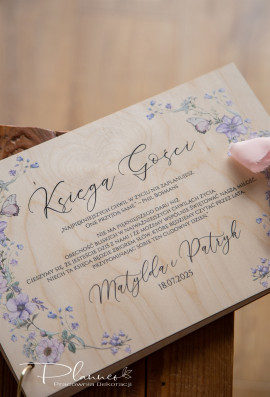 Księga Gości
„NAJPIĘKNIEJSZYCH CHWIL W ŻYCIU NIE ZAPLANUJESZ.
ONE PRZYJDĄ SAME." - PHIL BOSMANS
NIE MA PIĘKNIEJSZEGO DARU NIŻ
OBECNOŚĆ BLISKICH W NAJWAŻNIEJSZYCH CHWILACH ŻYCIA.
CIESZYMY SIĘ, ŻE JESTEŚCIE DZIŚ Z NAMI I ŻE MOŻEMY WSPÓLNIE ŚWIĘTOWAĆ
NIECH TA KSIĘGA BĘDZIE ZBIOREM SŁÓW, KTÓRE BĘDZIEMY CZYTAĆ PRZEZ LATA,
PRZYPOMINAJĄC SOBIE TEN CUDOWNY DZIEŃ.
Matylda i Patryk
18.07.2025
Planner
Pracownia Dekoracji